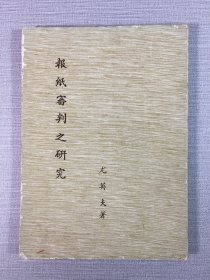 報紙審判之研究
尤英夫著